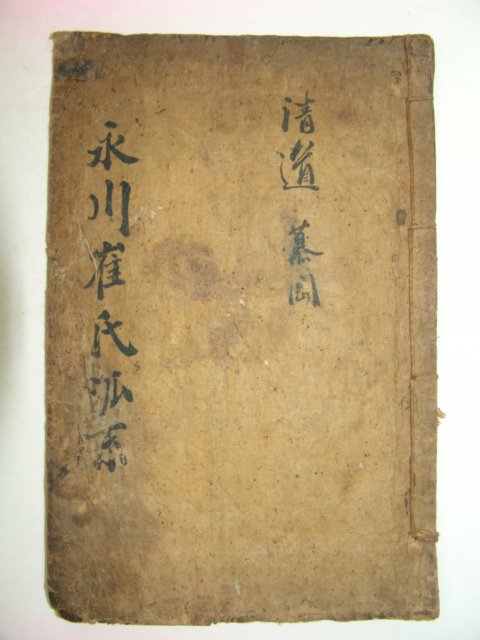 清道 慕岡
永川崔氏派系